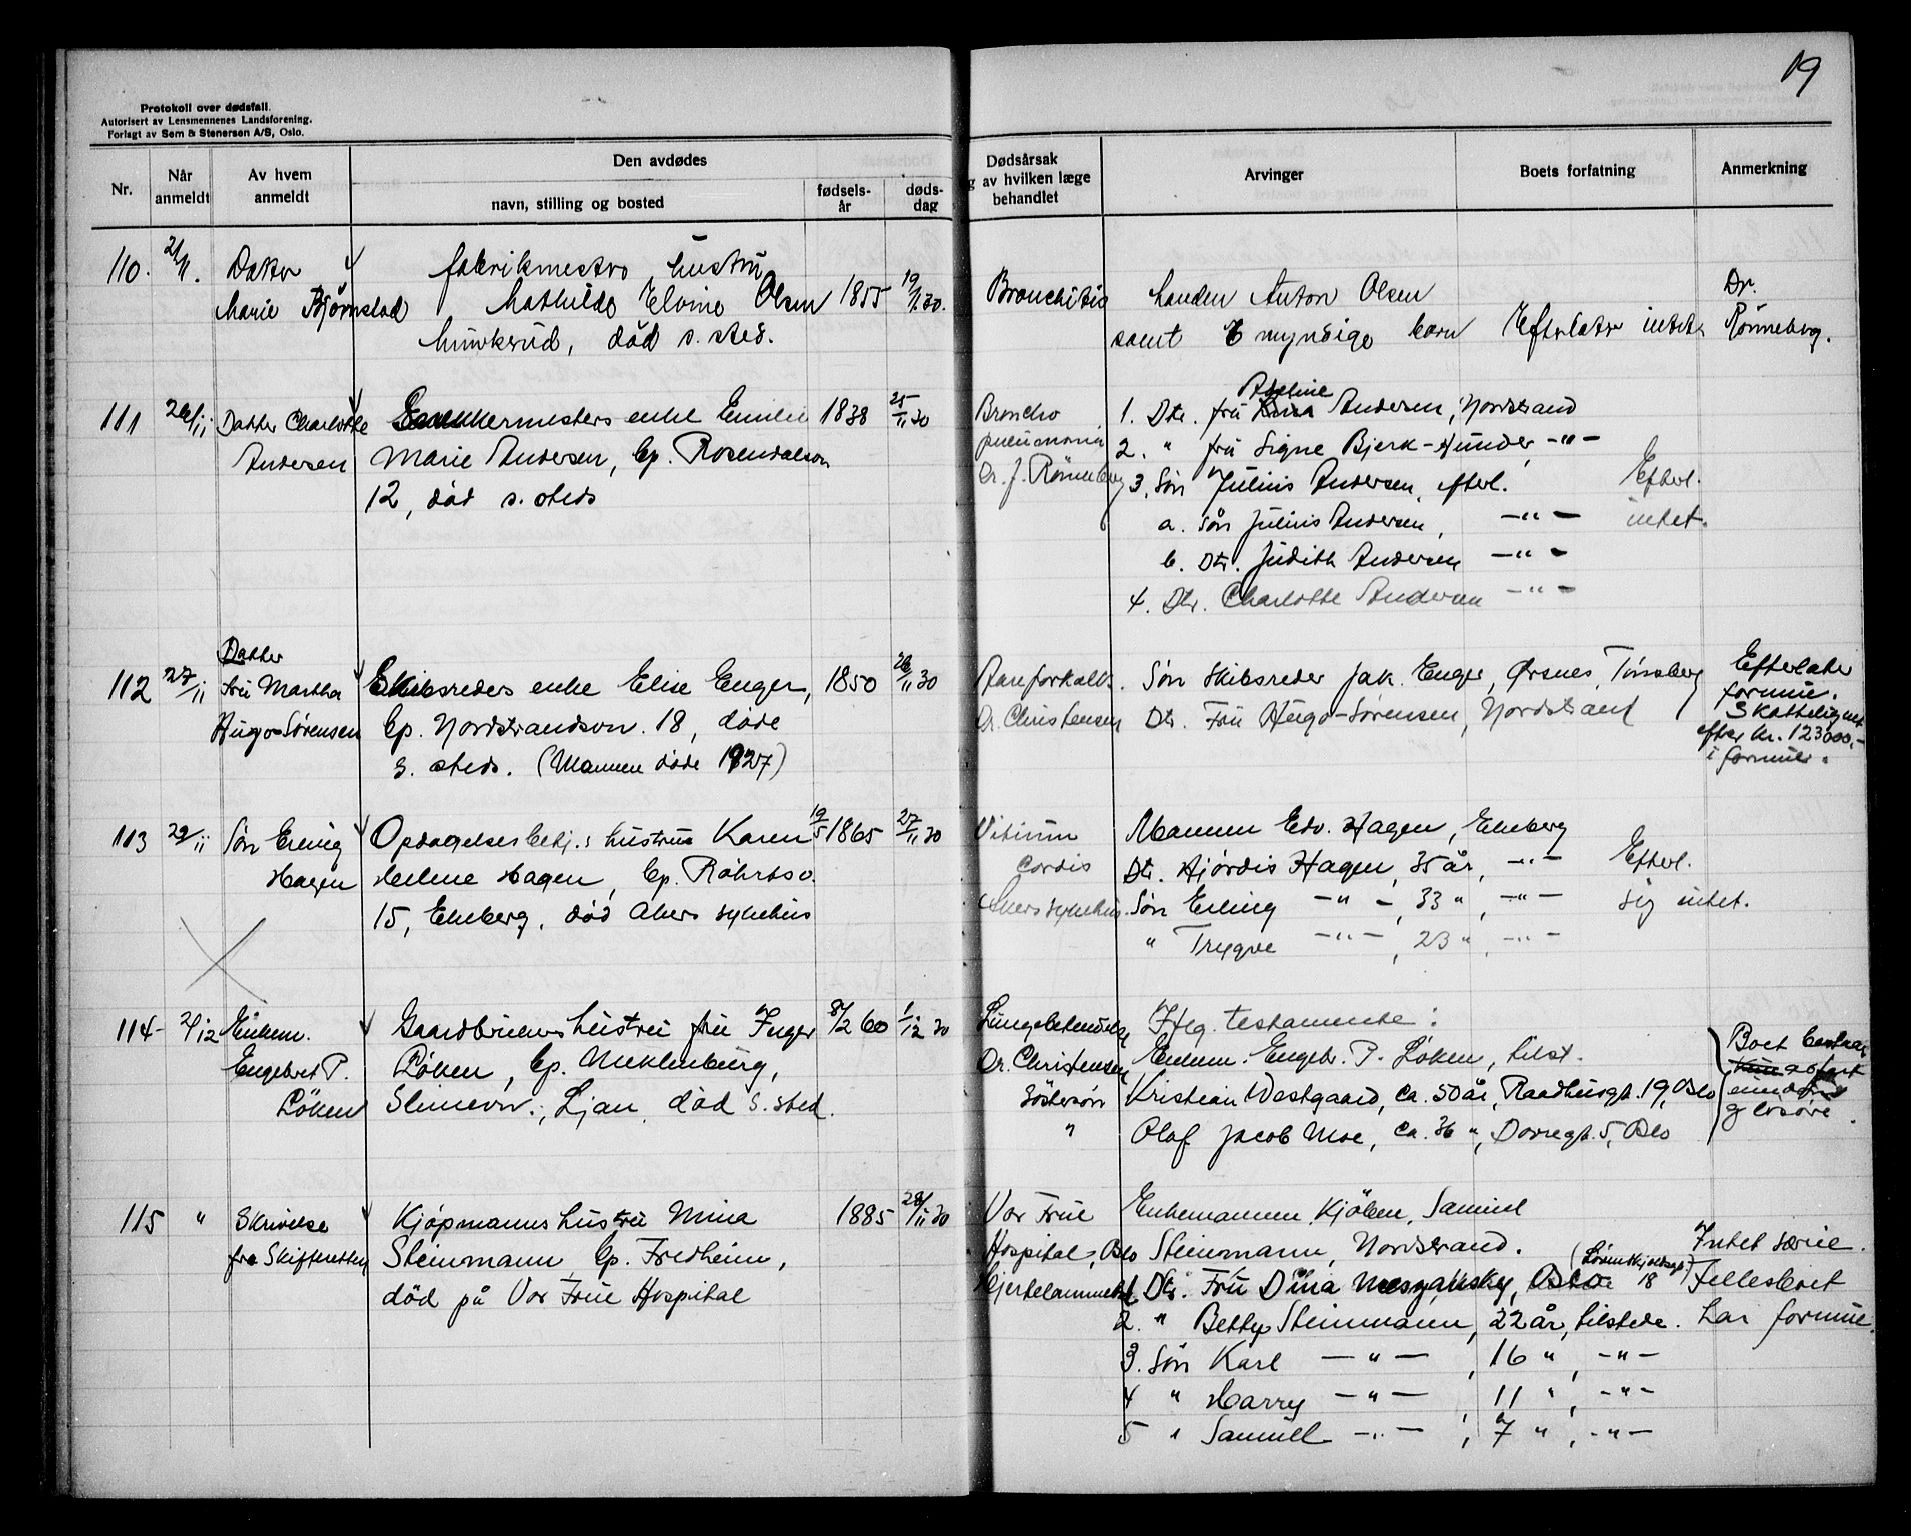 19
Protokoll over dødsfall.
Autorisert av Lensmennenes Landsforening.
Forlagt av Sem & Stenersen A/S, Oslo.
Nr. Når anmeldt Av hvem anmeldt Den avdødes navn, stilling og bosted fødsels-år døds-dag
Dødsårsak
g av hvilken læge
behandlet
Arvinger Boets forfatning Anmerkning
110. 21/11. Datter fabrikmestro hustru
Marie Bjørnstad Mathilde Elvine Olsen 1855 19/11 30.
Munkerud, død s. sted.
Bronchitis Manden Anton Olsen Dr.
samt 6 myndige barn Efterlater intet Rønneberg.
111 26/11 Datter Charlotte Andersen
enke Emilie 1838 25/11 30
Marie Andersen, bp. Rosendalsvn
12, død s. steds
Broncho
pneumonia
Dr. J. Rønneberg
1. Dtr. fru Adeline Andersen, Nordstrand
2. " fru Signe Bjerk-Hunder, -"-
3. Søn Julius Andersen, efterl. Efterl.
a. Søn Julius Andersen, -"- intet.
b. Dtr. Judith Andersen -"-
4. Dtr. Charlotte Andersen -"-
112 27/11 Datter
fru Martha
Hugo-Sørensen
Skibsreders enke Elise Enger, 1850 26/11 30
bp. Nordstrandsvn. 18, døde
s. steds. (Mannen døde 1927)
Aareforkalk.
Dr. Christensen
Søn Skibsreder Jak. Enger, Ørsnes, Tønsberg
Dtr. Fru Hugo-Sørensen, Nordstrand
Efterlater
formue.
Skattelignet
efter kr. 123000,-
i formue.
113 29/11 Søn Erling
Hagen
Opdagelsesbetj.s hustru Karen 19/5 1865 27/11 30
Helene Hagen, bp. Röhrtsv.
15, Ekeberg, død Akers sykehus
Vitium
cordis
Akers sykehus.
Mannen Edv. Hagen, Ekeberg
Dtr. Hjørdis Hagen, 35 år, -"- Efterl.
Søn Erling -"-, 33 ", -"- sig intet.
" Trygve -"-, 23 ", -"-
114- 2/12 Enkem.
Engebret P.
Løken
Gaardbrukers hustru fru Inger 8/2 60 1/12 30
Løken, bp. Meklenburg,
Slimevn., Ljan, død s. sted.
Lungebetendelse
Dr. Christensen
Iflg. testamente:
Enkem. Engebr. P. Løken, tilst.
Söstersön Kristian Westgaard, ca. 50 år, Raadhusgt. 19, Oslo
" Olaf Jacob Moe, ca. 36 ", Dovregt. 5, Oslo
Boet bestaar
av fast
eiendom
og løsøre.
115 " Skrivelse
fra Skifteretten
Kjøpmanns hustru Mina 1885 28/11 30
Steinmann bp. Fredheim,
död på Vor Frue Hospital
Vor Frue
Hospital, Oslo
Hjertelammelse
Enkemannen, Kjöbm. Samuel
Steinmann, Nordstrand.
Dtr. Fru Dina Meszansky, Oslo (Lörenskjoldsgt.) 18
2. " Betty Steinmann, 22 år, tilstede.
3. Søn Karl -"-, 16 ", -"-
4 " Harry -"-, 11 ", -"-
5 " Samuel -"-, 7 ", -"-
Intet særeie.
Fellesboet
har formue.